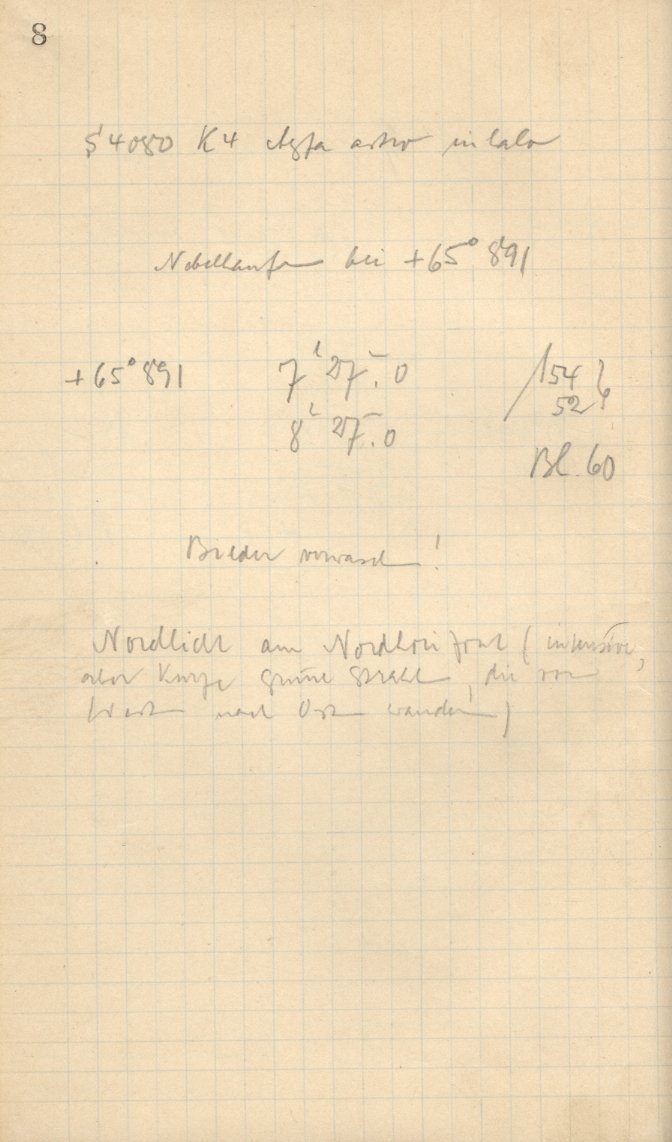 8
S 4080 K4 Agfa astro isolar
Nebelhaufen bei +65° 891
+65° 891 7h 27m.0 154
8h 27m.0 52
Bl. 60
Bilder verwaschen!
Nordlicht am Nordhorizont (intensive,
aber kurze grüne Strahlen, die von
West nach Ost wandern)